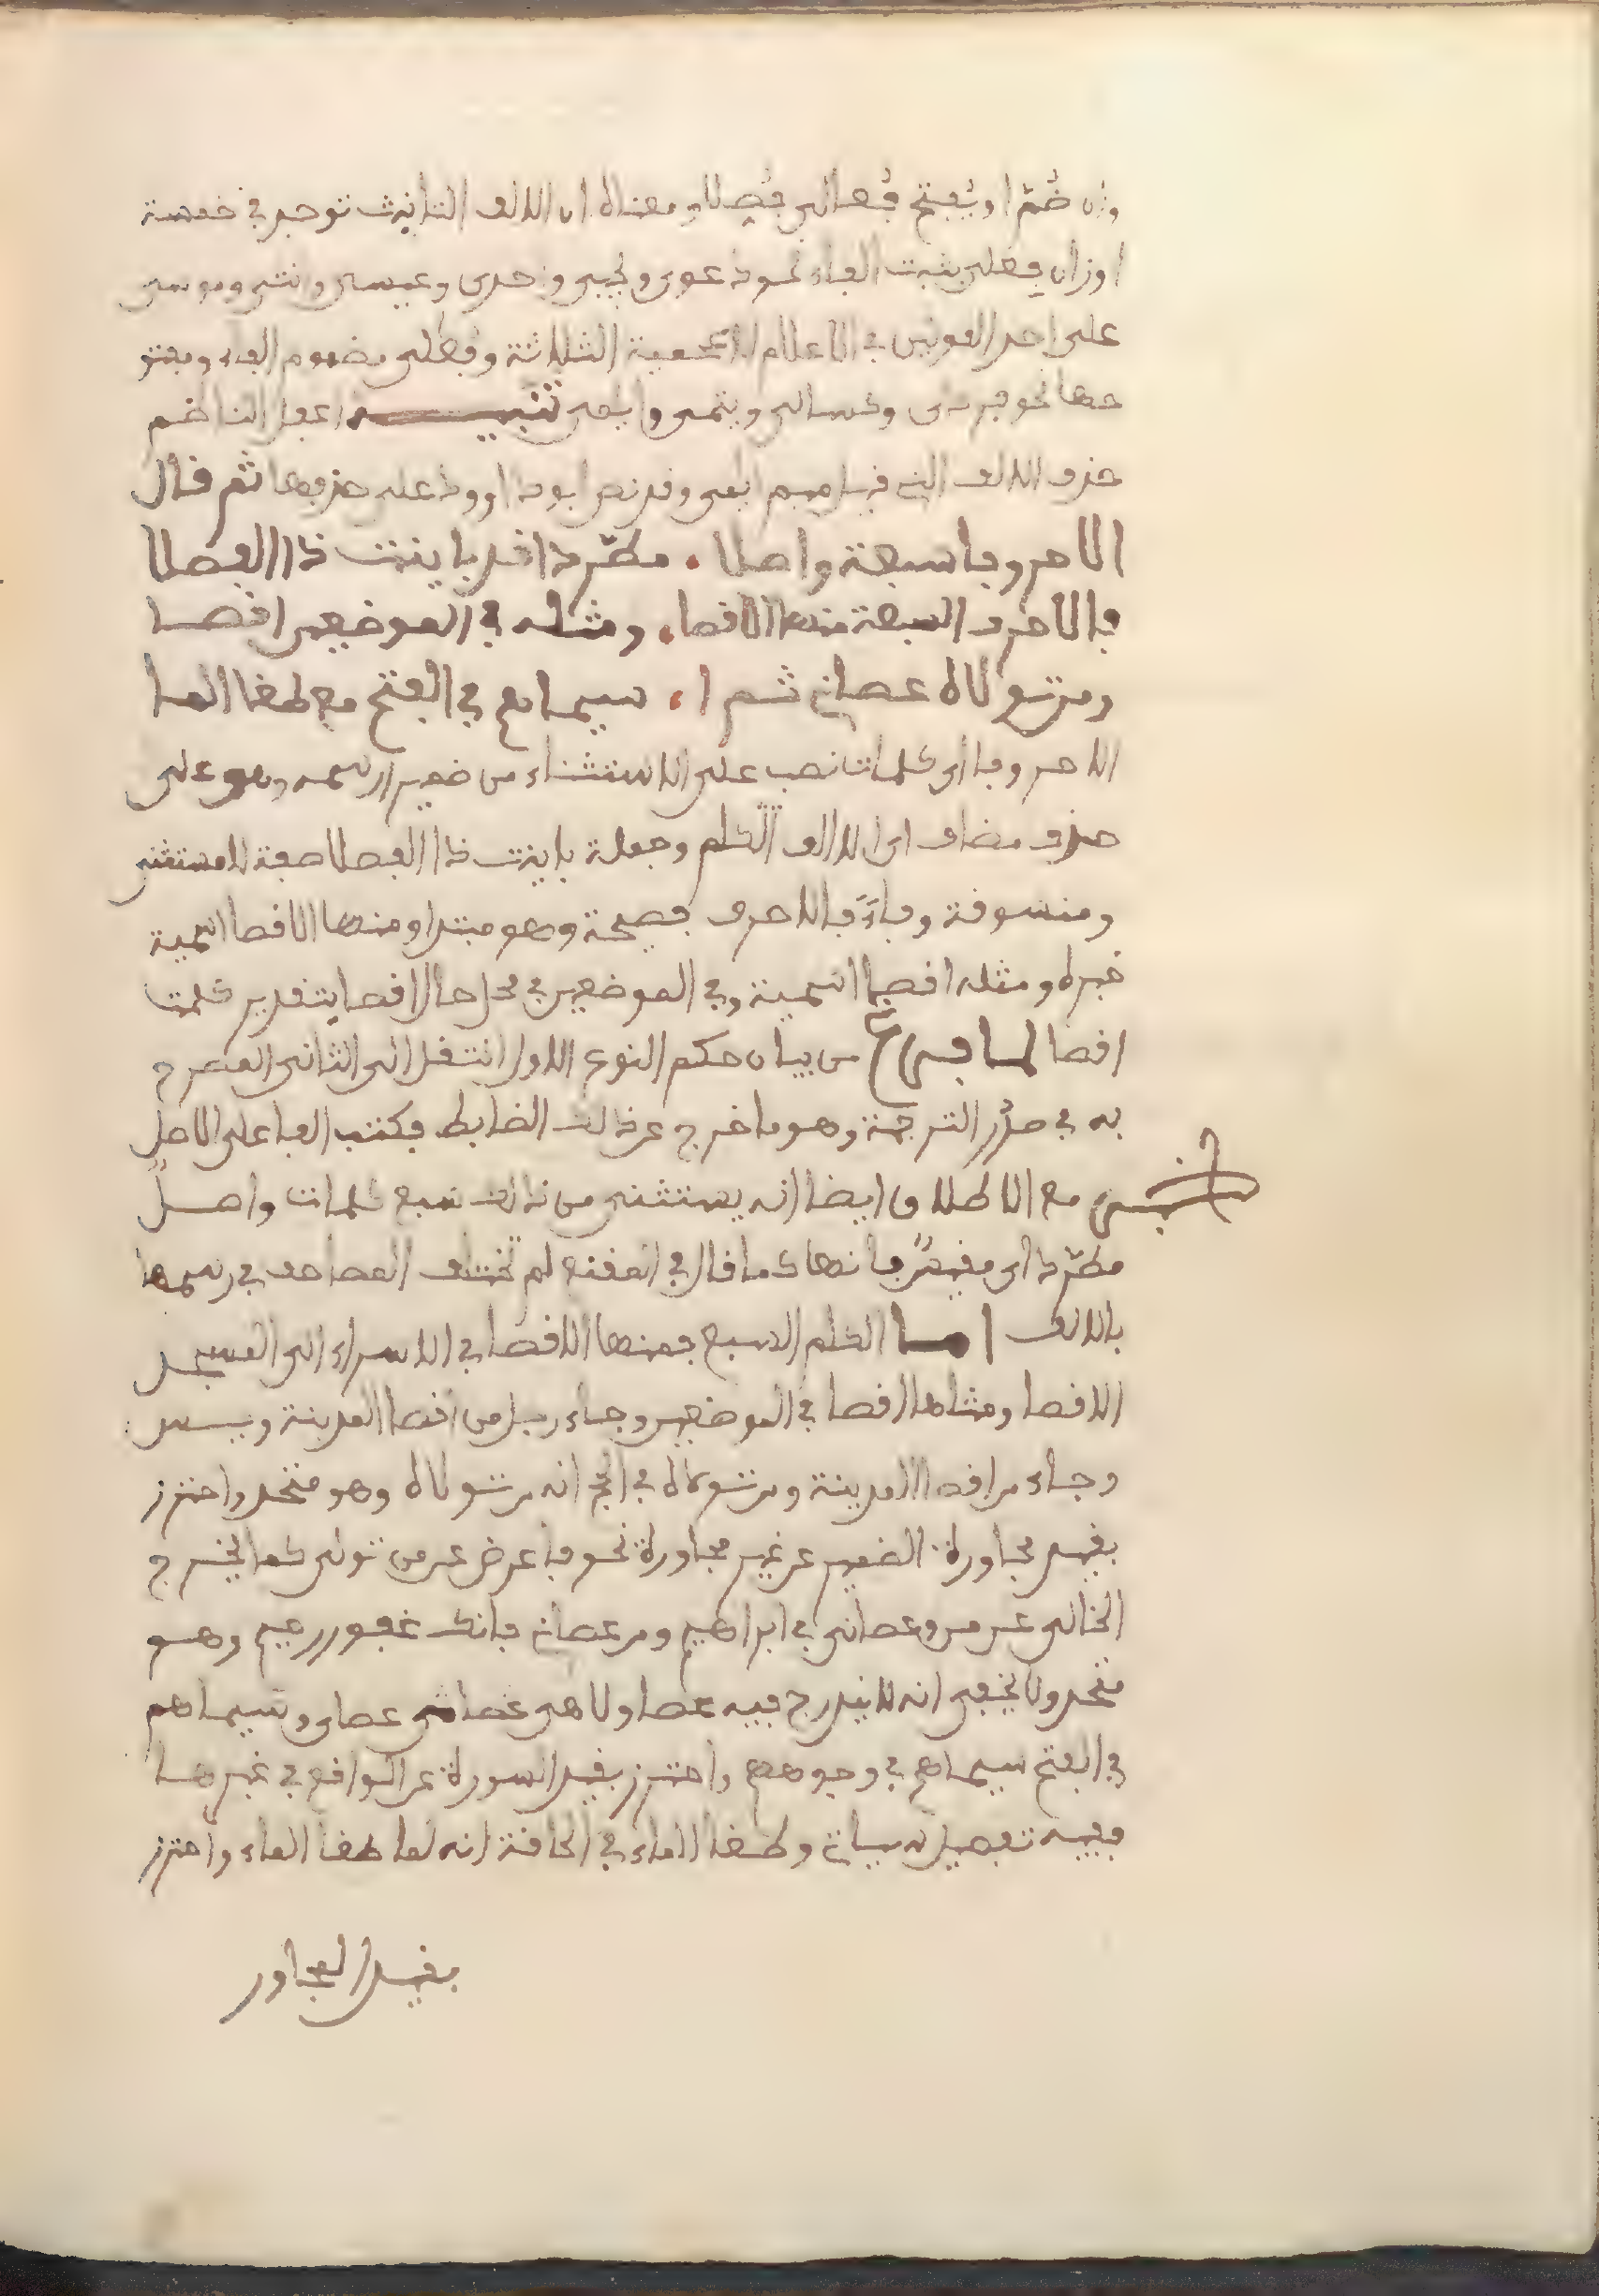 وإن ضُمّ أو يُفتح فُعالى فُحصّلا ومعناه ان الالف التانيث توجد في خمسة
اوزان فعلى بثبت الفاء نحو دعوى ويحيى واحدى وعيسى وانثى وموسى
على احد القولين في الاعلام الاعجمية الثلاثة وفعلى مضموم الفاء ومفتو
حها نحو فردى وكسالى ويتمى وايمى تنبيه اغفل الناظم
حذف الالف التي قبل ميم ايمى وقد نص ابو داوود على حذفها ثم قال
الا حروفا سبعة واصلا مطّردا قد باينت ذا الفصلا
فالاحرف السبعة منها الاقصا ومثله في الموضعين اقصا
ومن تولاه عصاني ثم ا سيماهم في الفتح مع طغا الما
الا حروفا اي كلمات نصب على الاستثناء من ضمير ارسمه وهو على
حذف مضاف اي الا الف الكلم وجملة باينت ذا الفصلا صفة للمستثنى
ومنسوقة وفاءُ فالاحرف فصيحة وهو مبتدا ومنها الاقصا اسمية
خبره ومثله اقصا اسمية وفي الموضعين في محل حال اقصا بتقدير كلمت
اقصا لما فرغ من بيان حكم النوع الاول انتقل الى الثاني المصرح
به في صدر الترجمة وهو ما خرج عن ذلك الضابط فكتب الفا على الاصل
فاخبر مع الاطلاق ايضا انه يستثنى من ذالك سبع كلمات واصلً
مطّردا اي مقيس فانها كما قال في المقنع لم تختلف المصاحف في رسمها
بالالف اما الكلم السبع فمنها الاقصا في الاسراء الى المسجد
الاقصا ومثلها اقصا في الموضعين وجاء رجل من اقصا المدينة ويس
وجاء من اقصا المدينة ومن تولاه في الحج انه من تولاه وهو متحد واحترز
بقيد مجاورة الضمير عن غير مجاورة نحو فاعرض عن من تولى كما يخرج
الخالي عن من وعصاني في ابراهيم ومن عصاني فانك غفور رحيم وهو
متحد ولا يخفى انه لا يندرج فيه عصا ولا هي عصاي عصاي وسيماهم
في الفتح سيماهم في وجوههم واحترز بقيد السورة عن الواقع في غيرها
ففيه تفصيل له سياتي وطغا الماء في الحاقة انه لما طغا الماء واحترز
بقيد المجاور